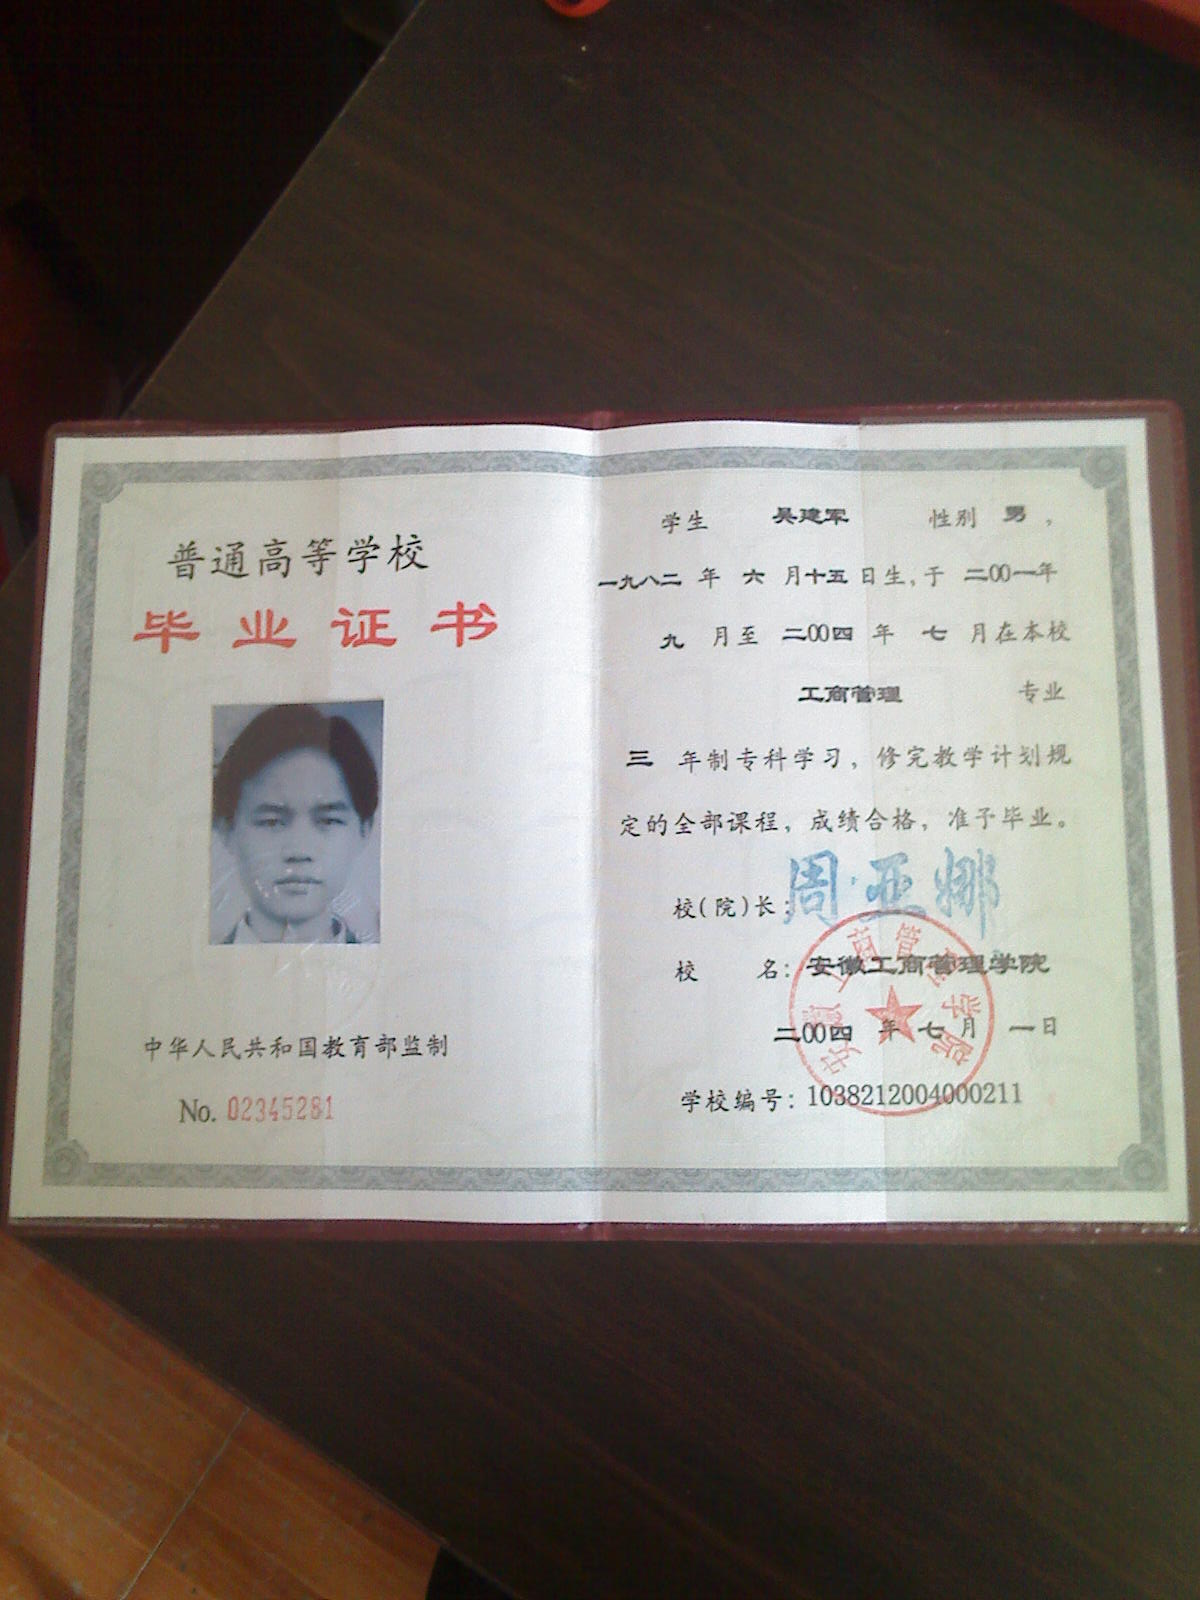 普通高等学校
毕业证书
中华人民共和国教育部监制
No. 02345281
学生 吴建军 性别 男，
一九八二 年 六 月十五日生，于 二00一年
九 月至 二00四 年 七 月在本校
工商管理 专业
三 年制专科学习，修完教学计划规
定的全部课程，成绩合格，准予毕业。
校(院)长：周亚娜
校 名：安徽工商管理学院
二00四 年 七 月 一日
学校编号：1038212004000211
安徽工商管理学院